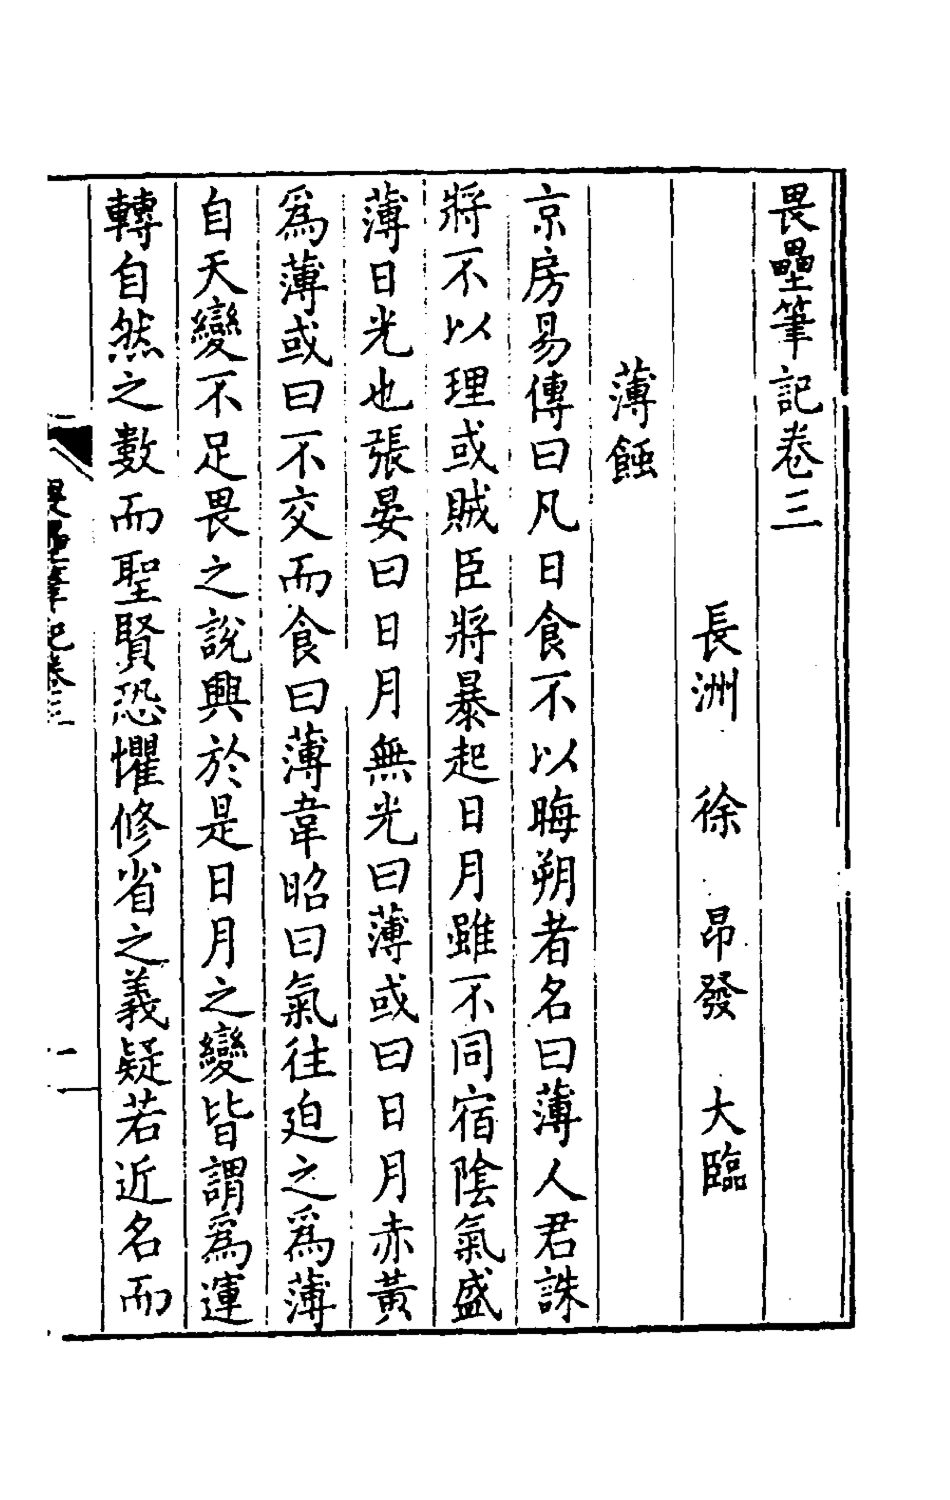 畏壘筆記卷三
長洲 徐 昂發 大臨
薄蝕
京房易傳曰凡日食不以晦朔者名曰薄人君誅
將不以理或賊臣將暴起日月雖不同宿陰氣盛
薄日光也張晏曰日月無光曰薄或曰日月赤黃
爲薄或曰不交而食曰薄韋昭曰氣往迫之爲薄
自天變不足畏之說興於是日月之變皆謂爲運
轉自然之數而聖賢恐懼修省之義疑若近名而
畏壘筆記卷三
一